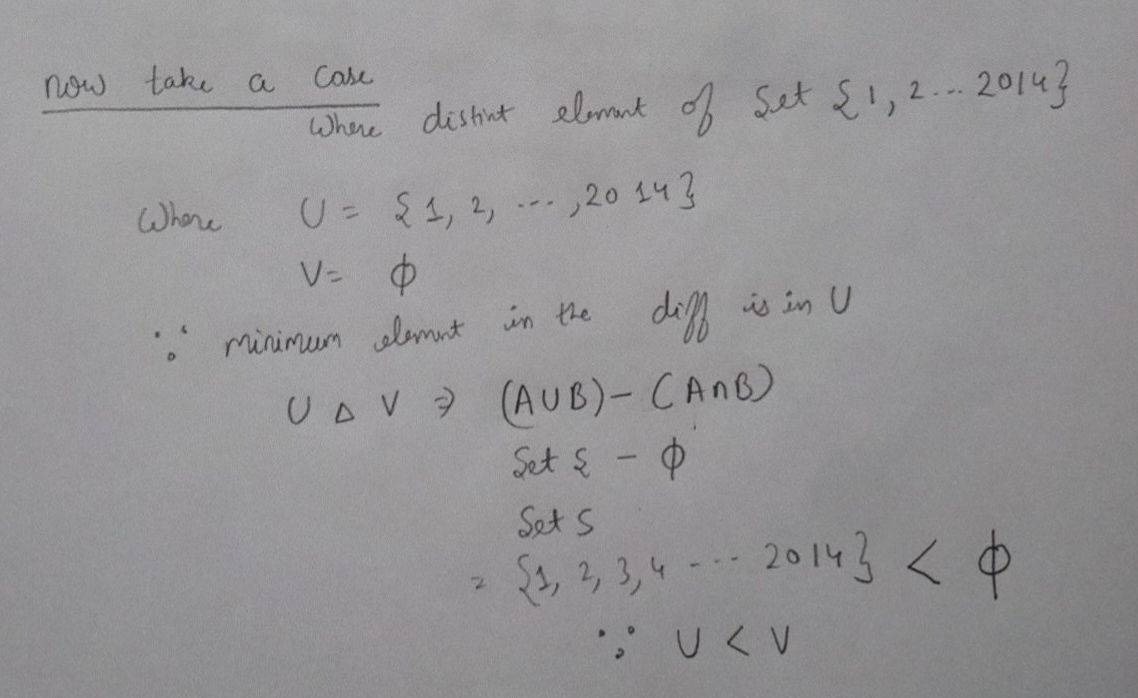 now take a case
Where distint element of Set {1, 2 ... 2014}
Where U = {1, 2, ---- ,20 14}
V= ϕ
∵ minimum element in the diff is in U
U Δ V ⇒ (A∪B)- (A∩B)
Set S - ϕ
Set S
= {1, 2, 3, 4 ---- 2014} < ϕ
∵ U < V